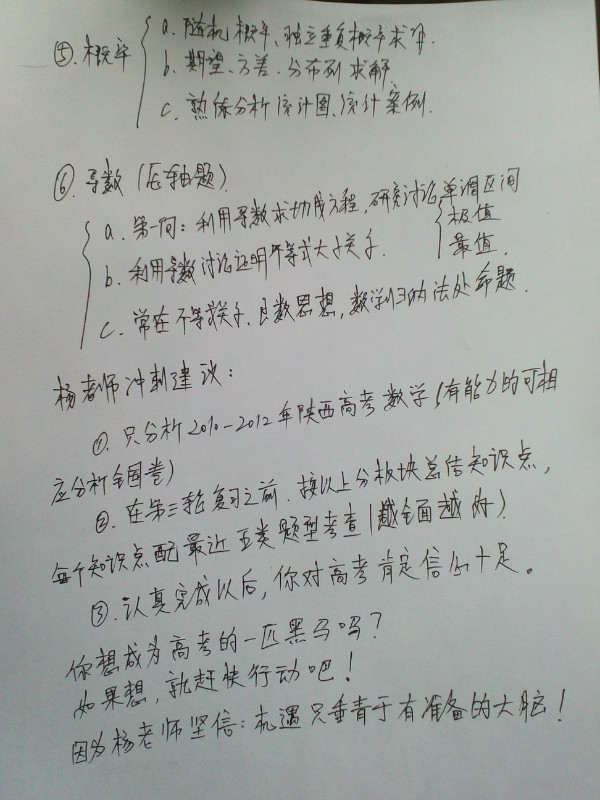 a. 随机概率、独立重复概率求解.
⑤. 概率
b. 期望、方差. 分布列求解
c. 熟练分析统计图、统计案例.
⑥. 导数（压轴题）
a. 第一问：利用导数求切线方程，研究讨论单调区间
极值
b. 利用导数讨论证明不等式大小关系.
最值.
c. 常在不等关系、函数思想，数学归纳法处命题.
杨老师冲刺建议：
①. 只分析2010-2012年陕西高考数学（有能力的可相
应分析全国卷）
②. 在第三轮复习之前. 按以上分板块总结知识点，
每个知识点配最近五类题型考查（越全面越好）
③. 认真完成以后，你对高考肯定信心十足。
你想成为高考的一匹黑马吗？
如果想，就赶快行动吧！
因为杨老师坚信：机遇只垂青于有准备的大脑！